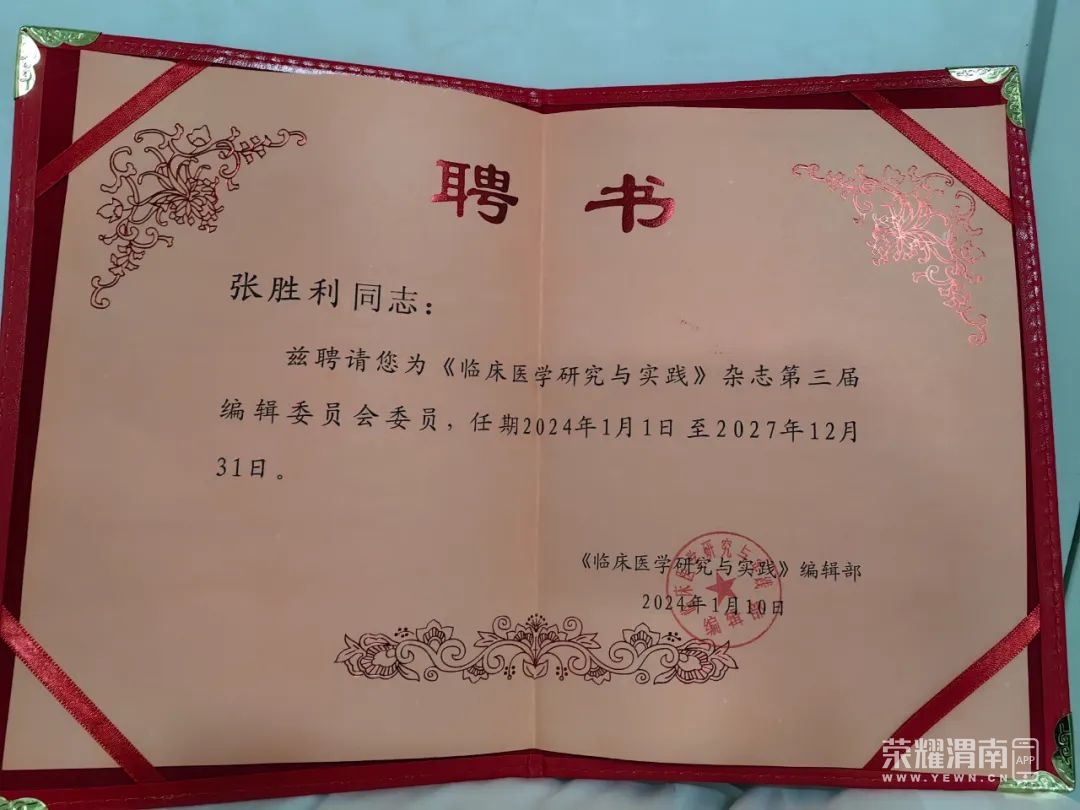 聘书
张胜利同志：
兹聘请您为《临床医学研究与实践》杂志第三届
编辑委员会委员，任期2024年1月1日至2027年12月
31日。
《临床医学研究与实践》编辑部
2024年1月10日
临床医学研究与实践
编辑部
荣耀渭南APP
WWW.YEWN.CN